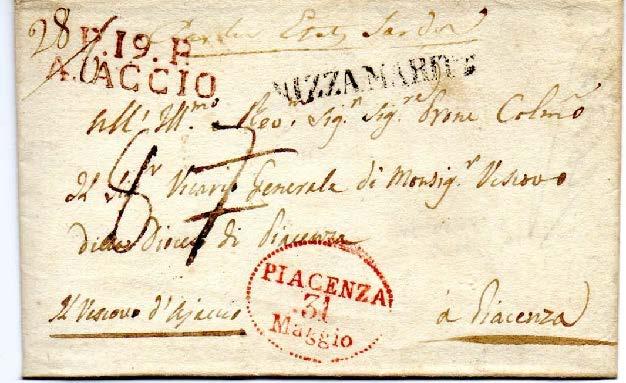 28
P.19.P.
AJACCIO
Sardi
NIZZA MARITT
All' Ill.mo Rev. Sig.r Sig.re Prone Colmo
Il Sig.r Vicario Generale di Monsig.r Vescovo
della Diocesi di Piacenza
PIACENZA
31
Maggio
Il Vescovo d'Ajaccio
à Piacenza